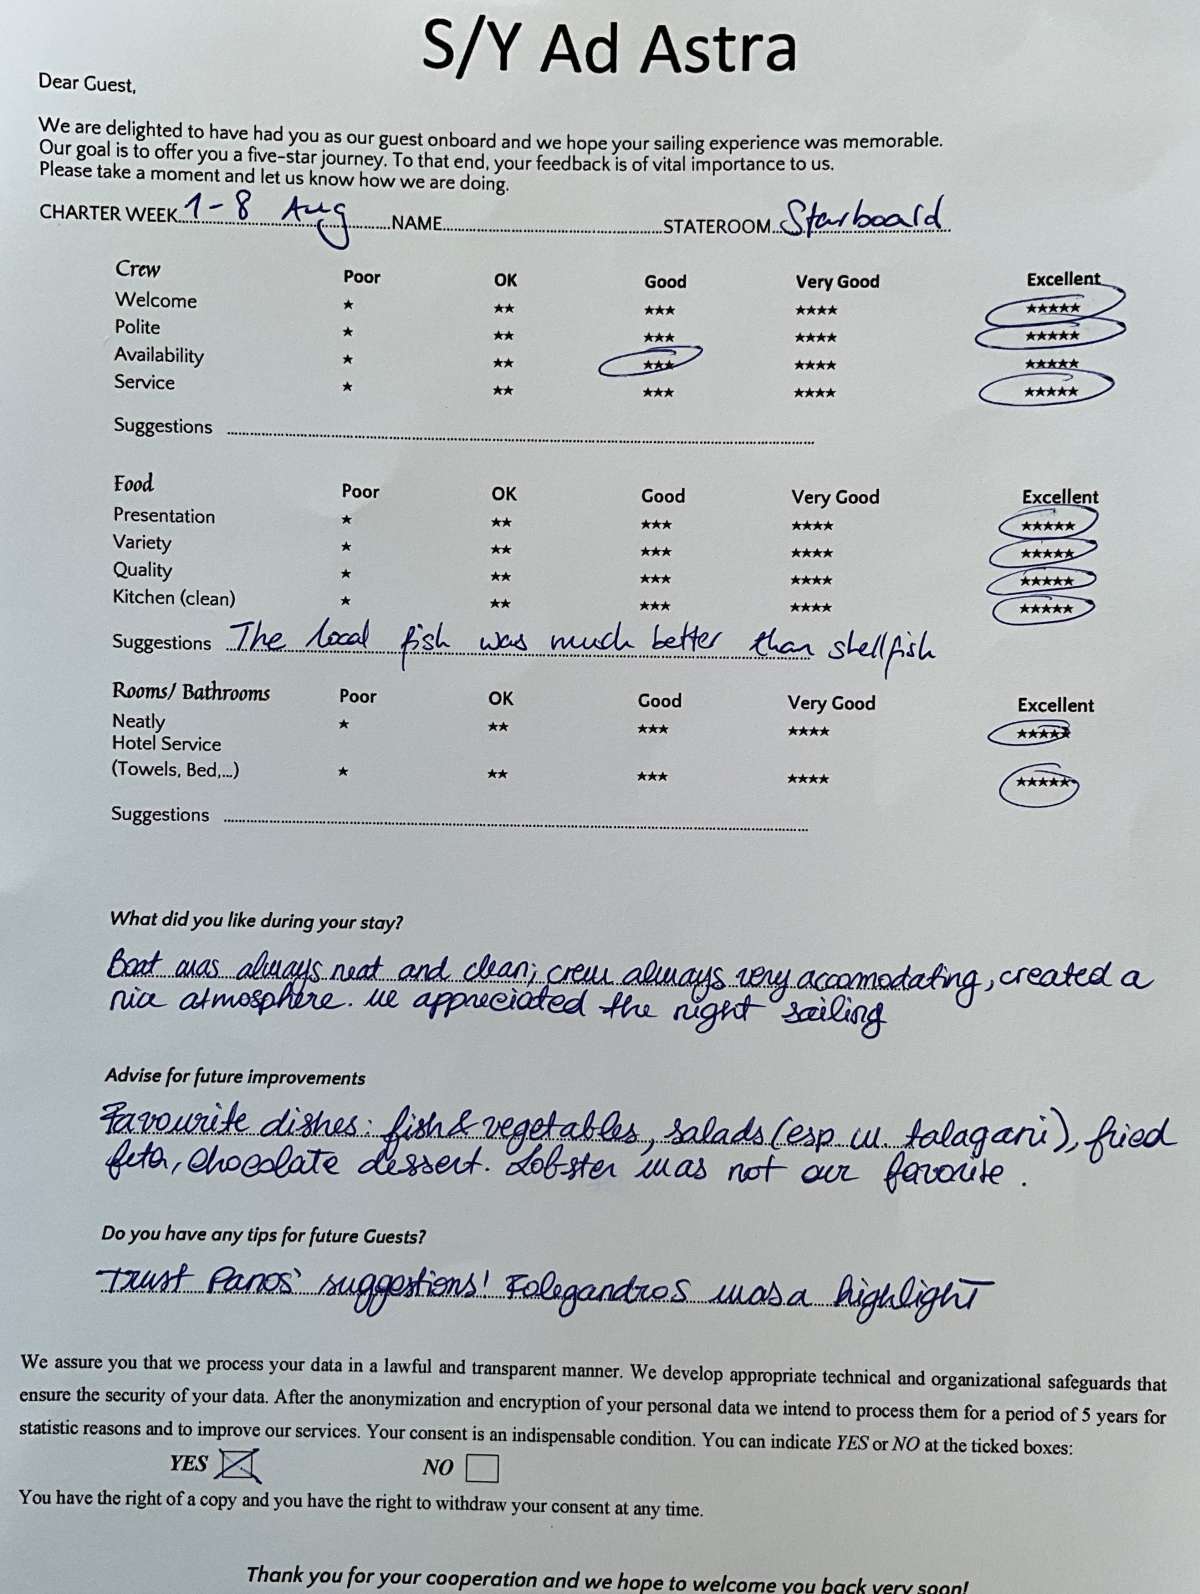 S/Y Ad Astra
Dear Guest,
We are delighted to have had you as our guest onboard and we hope your sailing experience was memorable.
Our goal is to offer you a five-star journey. To that end, your feedback is of vital importance to us.
Please take a moment and let us know how we are doing.
CHARTER WEEK 1-8 Aug NAME STATEROOM Starboard
Crew Poor OK Good Very Good Excellent
Welcome ★ ★★ ★★★ ★★★★ ★★★★★
Polite ★ ★★ ★★★ ★★★★ ★★★★★
Availability ★ ★★ ★★★ ★★★★ ★★★★★
Service ★ ★★ ★★★ ★★★★ ★★★★★
Suggestions
Food Poor OK Good Very Good Excellent
Presentation ★ ★★ ★★★ ★★★★ ★★★★★
Variety ★ ★★ ★★★ ★★★★ ★★★★★
Quality ★ ★★ ★★★ ★★★★ ★★★★★
Kitchen (clean) ★ ★★ ★★★ ★★★★ ★★★★★
Suggestions The local fish was much better than shellfish
Rooms/ Bathrooms Poor OK Good Very Good Excellent
Neatly ★ ★★ ★★★ ★★★★ ★★★★★
Hotel Service
(Towels, Bed,...) ★ ★★ ★★★ ★★★★ ★★★★★
Suggestions
What did you like during your stay?
Boat was always neat and clean; crew always very accomodating, created a
nice atmosphere. We appreciated the night sailing
Advise for future improvements
Favourite dishes: fish & vegetables, salads (esp w. talagani), fried
feta, chocolate dessert. Lobster was not our favorite.
Do you have any tips for future Guests?
Trust Panos' suggestions! Folegandros was a highlight
We assure you that we process your data in a lawful and transparent manner. We develop appropriate technical and organizational safeguards that
ensure the security of your data. After the anonymization and encryption of your personal data we intend to process them for a period of 5 years for
statistic reasons and to improve our services. Your consent is an indispensable condition. You can indicate YES or NO at the ticked boxes:
YES NO
You have the right of a copy and you have the right to withdraw your consent at any time.
Thank you for your cooperation and we hope to welcome you back very soon!